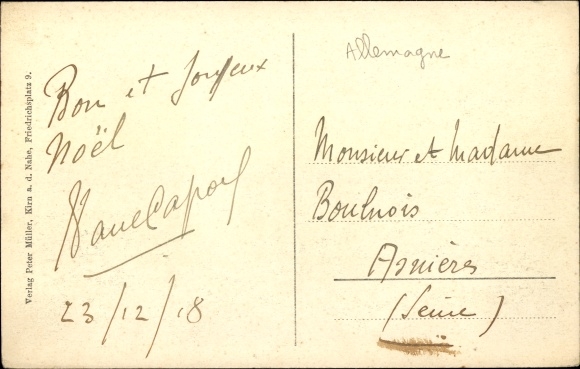 Verlag Peter Müller, Kirn a. d. Nahe, Friedrichsplatz 9.
Bon et Joyeux
Noël
23/12/18
Allemagne
Monsieur et Madame
Boulnois
Asnières
(Seine)